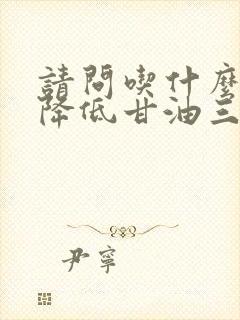 請問喫什麼
降低甘油三
尹寧